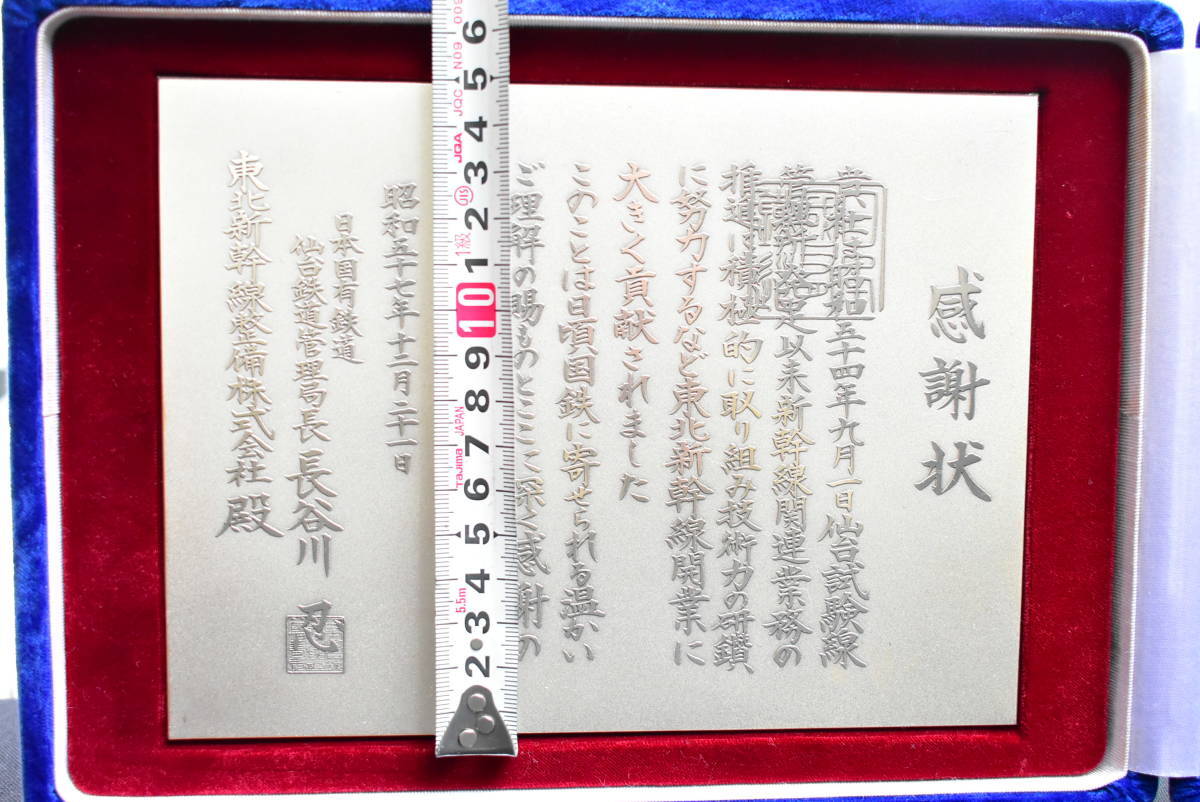 感謝状
貴社は昭和五十四年九月一日仙台試験線
管理所発足以来新幹線関連業務の
推進に積極的に取り組み技術力の研鑽
に努力するなど東北新幹線開業に
大きく貢献されました
このことは日頃国鉄に寄せられる温かい
ご理解の賜ものとここに深く感謝の
昭和五十七年十二月二十一日
日本国有鉄道
仙台鉄道管理局長 長谷川 忍
東北新幹線整備株式会社 殿
6 5 4 3 2 1 10 9 8 7 6 5 4 3 2
JQA JQC NO9 009
JIS 1級
Tajima JAPAN
5.5m